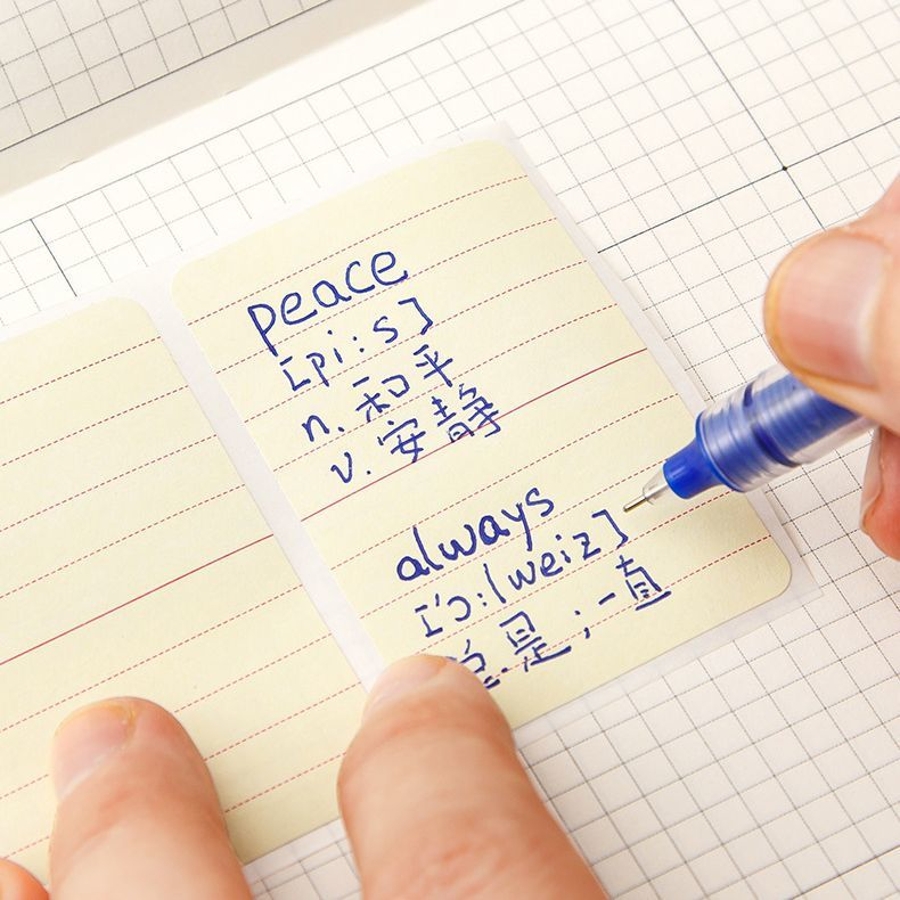 peace
[pi:s]
n. 和平
v. 安静
always
['ɔ:lweiz]
总是；一直